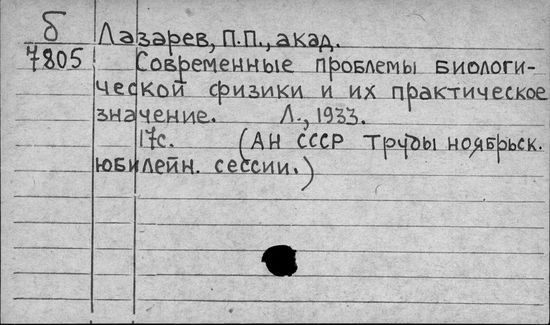 Б
7805
Лазарев, П.П., акад.
Современные проблемы биологи-
ческой физики и их практическое
значение. Л., 1933.
17с. (АН СССР Труды ноябрьск.
юбилейн. сессии.)